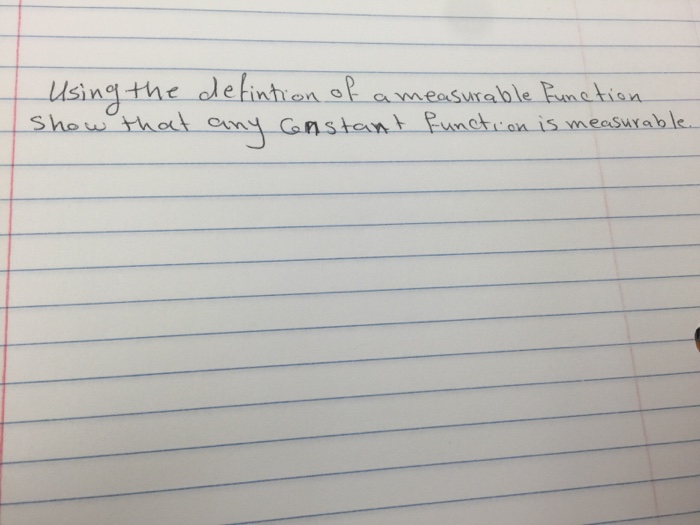 Using the defintion of a measurable Function
Show that any Constant function is measurable.